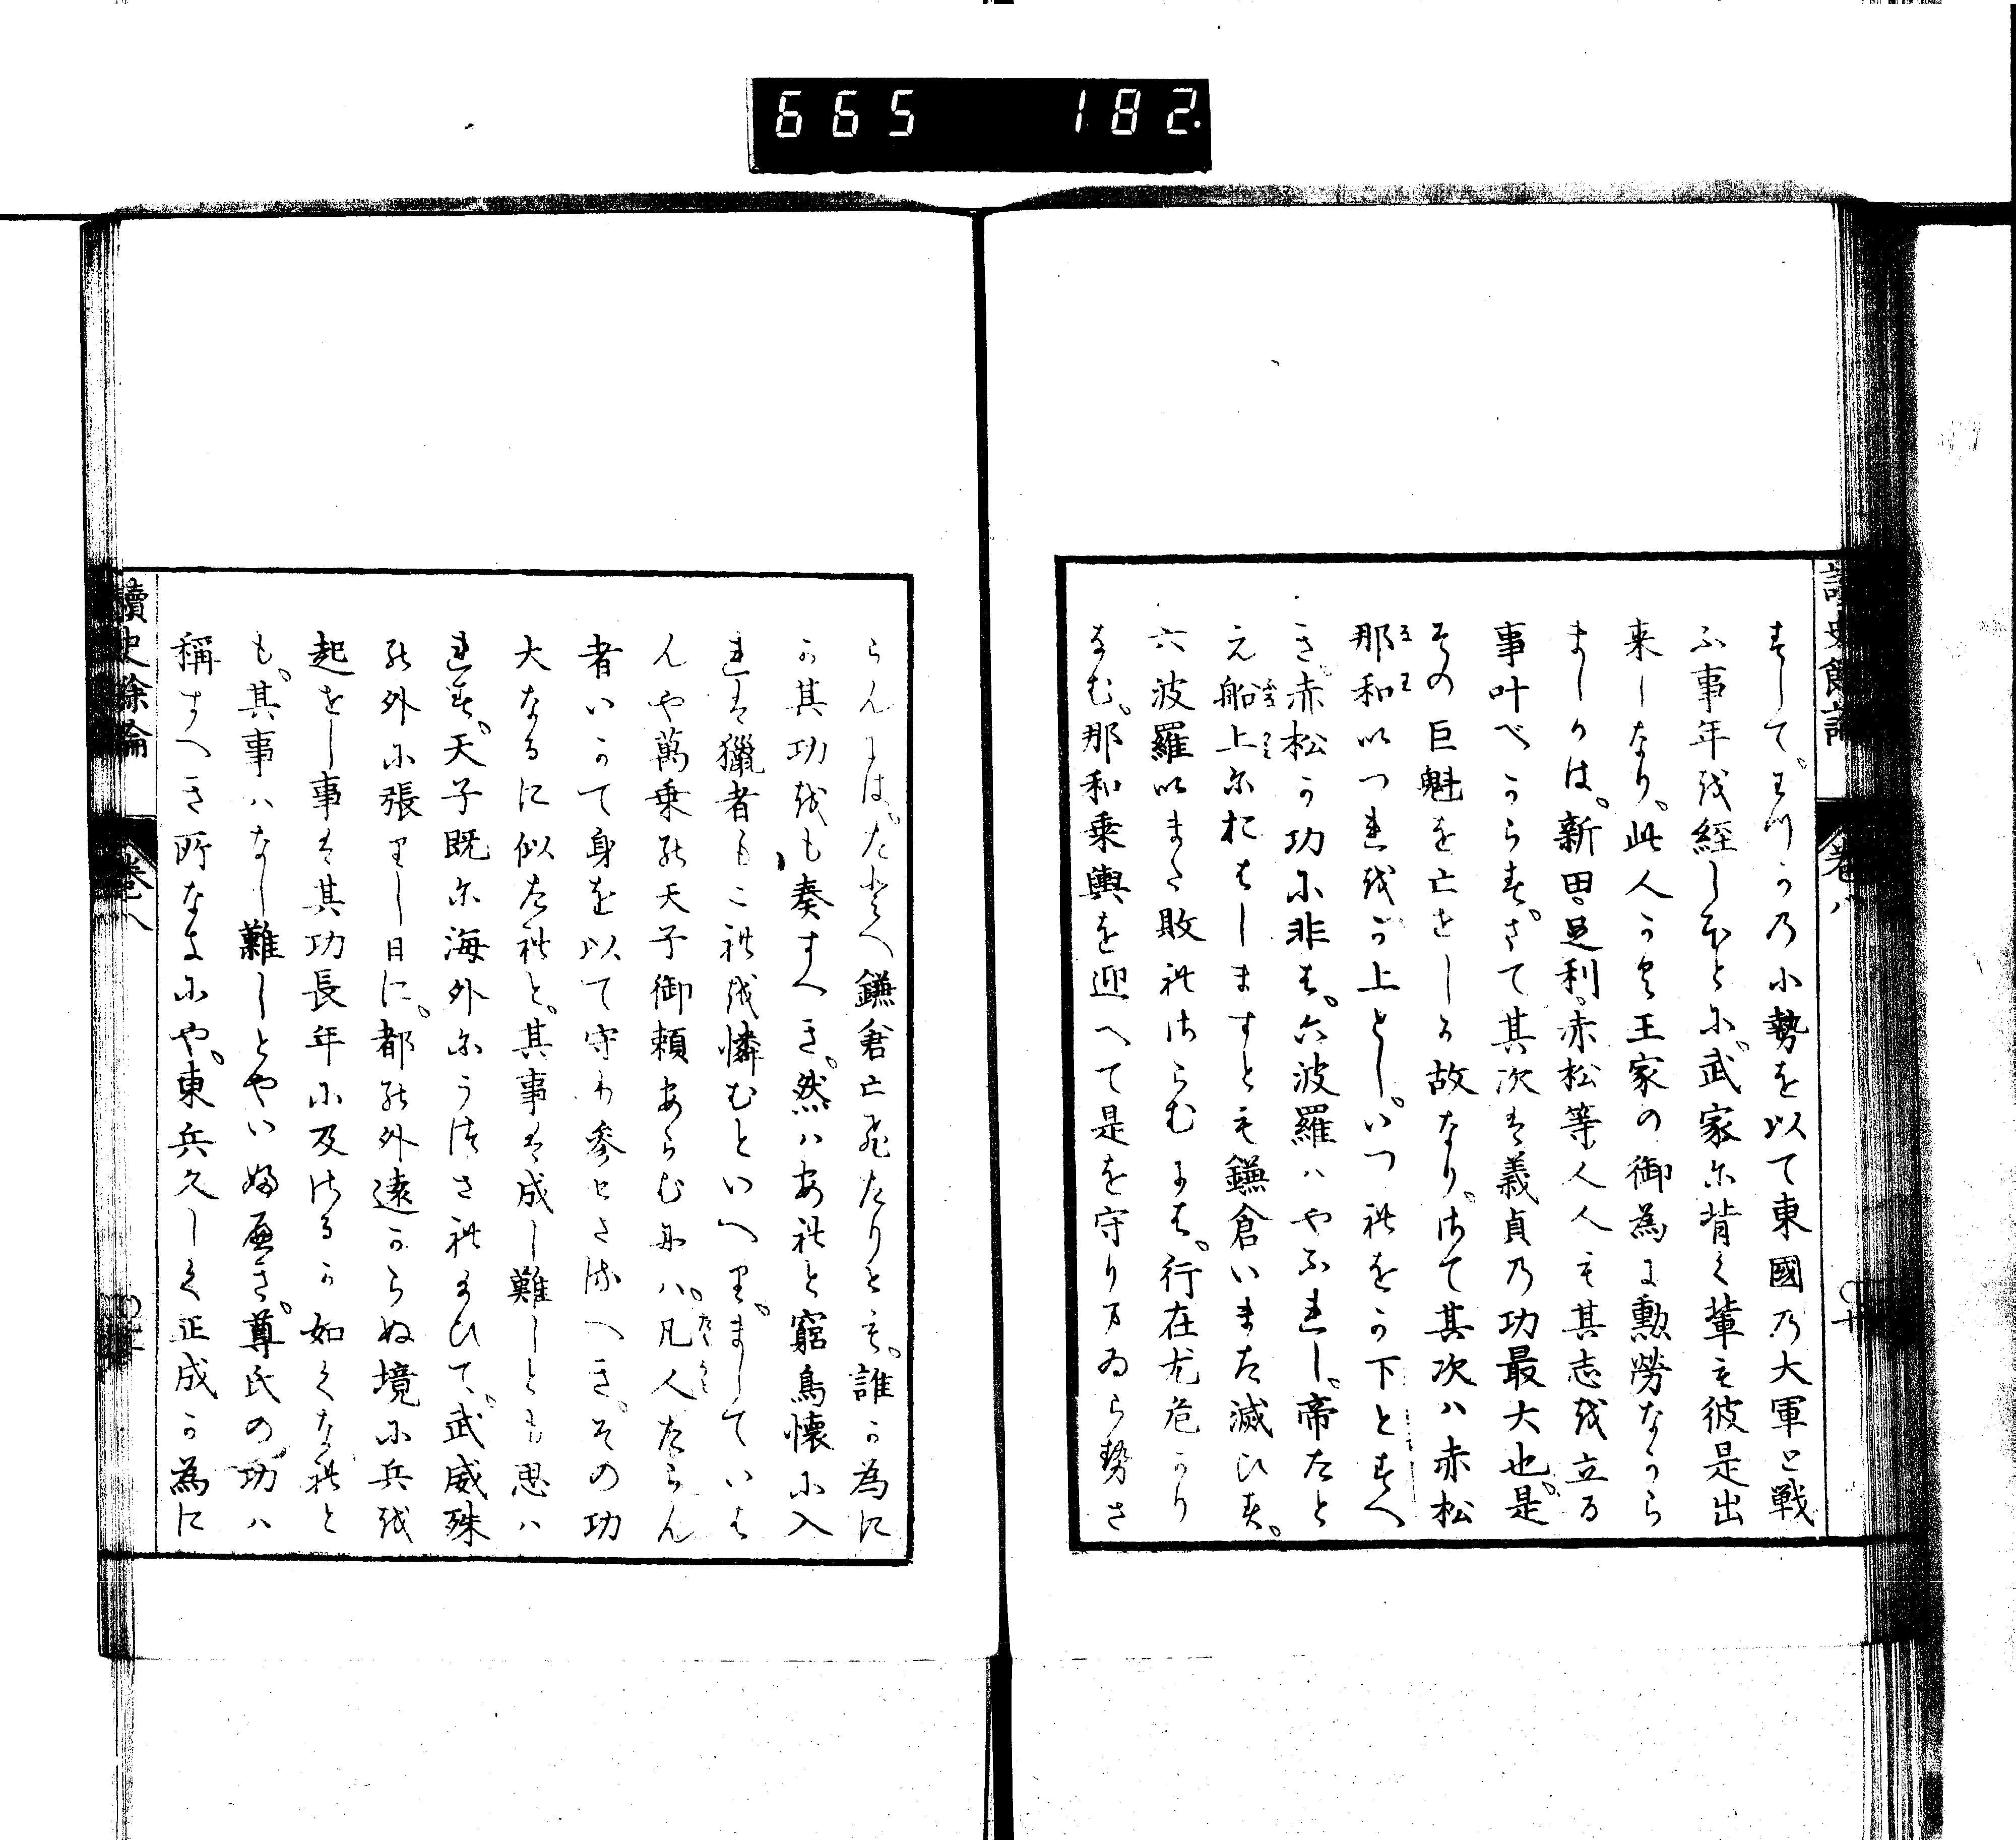 665 182
讀史餘論 卷八
すして。わつかの小勢を以て東國乃大軍と戦
ふ事年を経しほとに。武家に背く輩も彼是出
来しなり。此人かく王家の御為に勲勞なから
ましかは。新田。足利。赤松等人人も其志を立る
事叶べからす。さて其次は義貞乃功最大也。是
その巨魁を亡せしか故なり。さて其次ハ赤松
那和いつれをか上とし。いつれをか下とすへ
き。赤松か功に非す。六波羅ハやふれし。帝たと
え船上におはしますとも鎌倉いまた滅ひす。
六波羅いまた敗れさらむには。行在尤危かり
なむ。那和乗輿を迎へて是を守りまゐらせさ
らんには。たとへ鎌倉亡ひたりとも。誰か為に
か其功をも奏すへき。然ハあれと窮鳥懐に入
れは獵者もこれを憐むといへり。ましていは
んや萬乗の天子御頼あらむにハ。凡人たらん
者いかて身を以て守り参らせさるへき。その功
大なるに似たれと。其事は成し難しとも思ハ
れす。天子既に海外にうつされ玉ひて。武威殊
の外に張りし日に。都の外遠からぬ境に兵を
起せし事は其功長年に及さるか如くなれと
も。其事ハなし難しとやいふべき。尊氏の功ハ
稱すへき所なきにや。東兵久しく正成か為に
讀史餘論 卷八